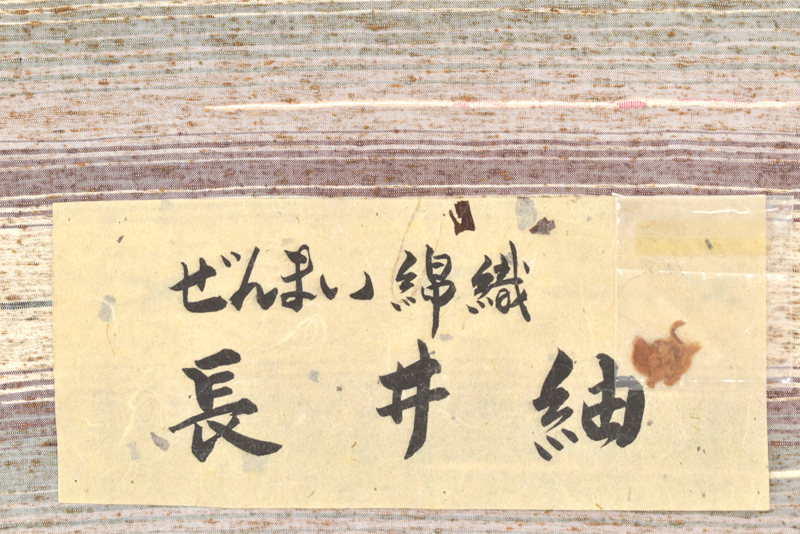 ぜんまい綿織
長井紬